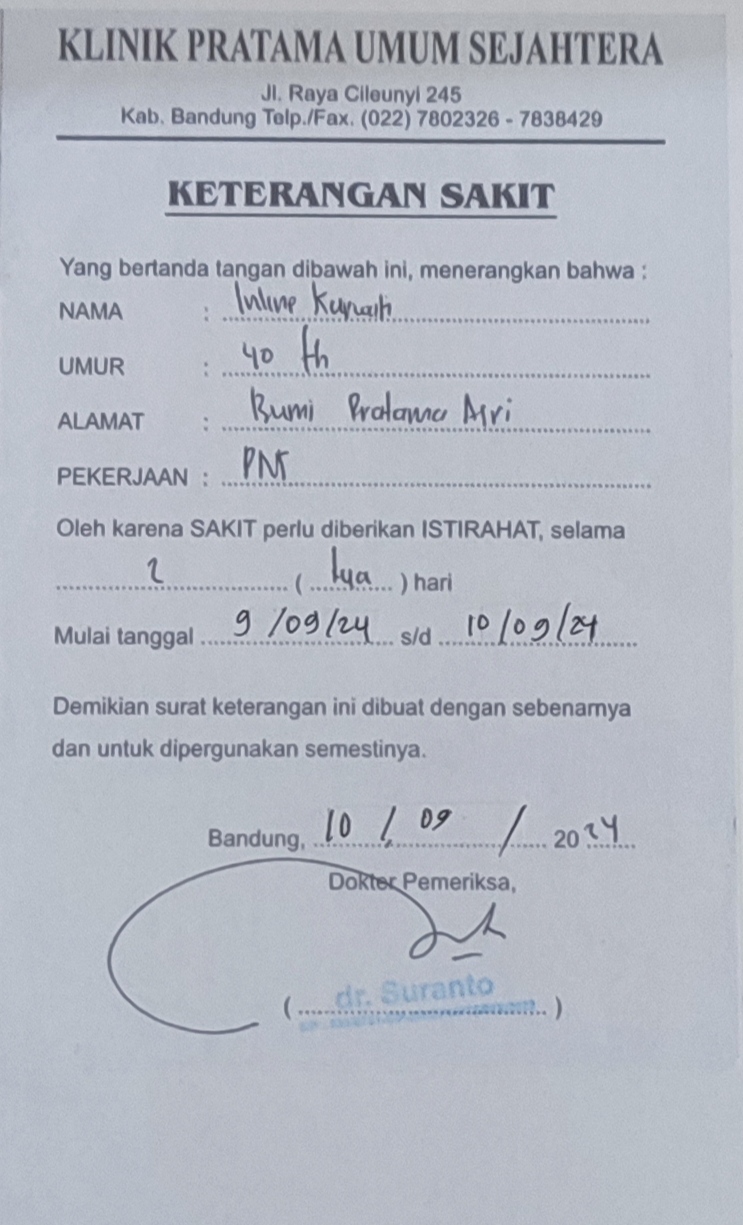 KLINIK PRATAMA UMUM SEJAHTERA
Jl. Raya Cileunyi 245
Kab. Bandung Telp./Fax. (022) 7802326 - 7838429
KETERANGAN SAKIT
Yang bertanda tangan dibawah ini, menerangkan bahwa :
NAMA :
UMUR : 40 th
ALAMAT : Bumi Pratama Asri
PEKERJAAN : PNS
Oleh karena SAKIT perlu diberikan ISTIRAHAT, selama
2 ( ) hari
Mulai tanggal 9/09/24 s/d 10/09/24
Demikian surat keterangan ini dibuat dengan sebenarnya
dan untuk dipergunakan semestinya.
Bandung, 10 / 09 / 2024
Dokter Pemeriksa,
( dr. Suranto )